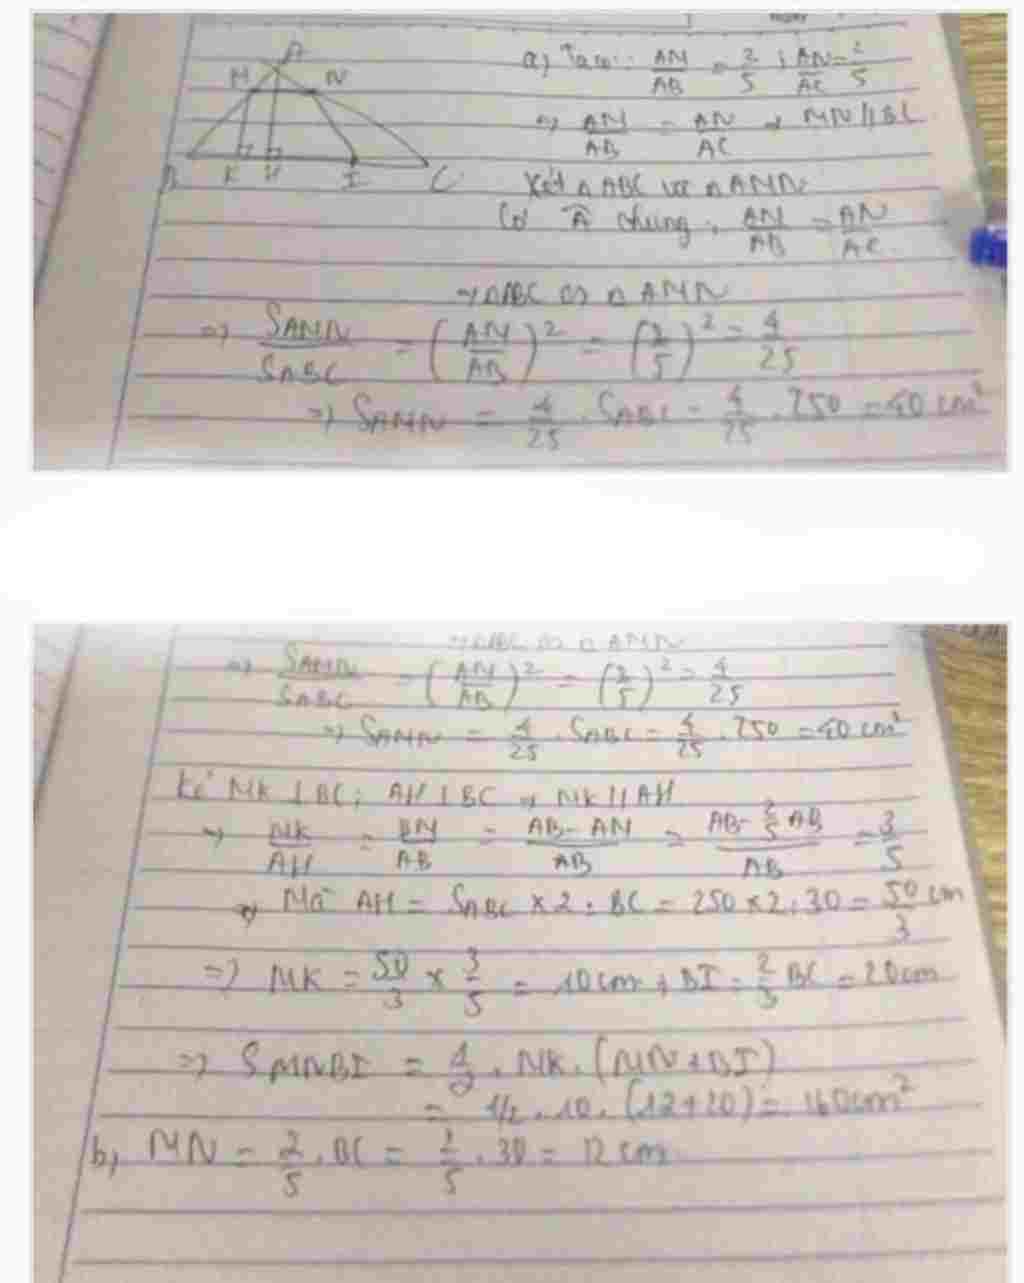 A
M N
B K H I C
a) Ta có: AM/AB = 2/5; AN/AC = 2/5
=> AM/AB = AN/AC => MN // BC
Xét △ABC và △AMN
Có Â chung; AM/AB = AN/AC
=> △ABC ∽ △AMN
=> SAMN/SABC = (AM/AB)² = (2/5)² = 4/25
=> SAMN = 4/25 . SABC = 4/25 . 250 = 40 cm²
=> △ABC ∽ △AMN
=> SAMN/SABC = (AM/AB)² = (2/5)² = 4/25
=> SAMN = 4/25 . SABC = 4/25 . 250 = 40 cm²
Kẻ MK ⊥ BC; AH ⊥ BC => MK // AH
=> MK/AH = BM/AB = AB - AM/AB = AB - 2/5 AB/AB = 3/5
=> Mà AH = SABC x 2 : BC = 250 x 2 : 30 = 50/3 cm
=> MK = 50/3 x 3/5 = 10 cm; BI = 2/3 BC = 20 cm
=> SMNBI = 1/2 . MK . (MN + BI)
= 1/2 . 10 . (12 + 20) = 160 cm²
b, MN = 2/5 . BC = 2/5 . 30 = 12 cm